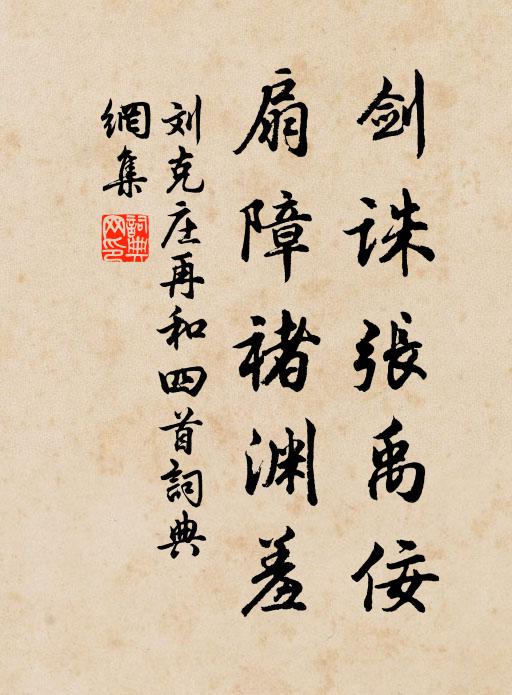 剑诛張禹佞
扇障褚渊羞
刘克庄再和四首詞典
網集
詞典
网印